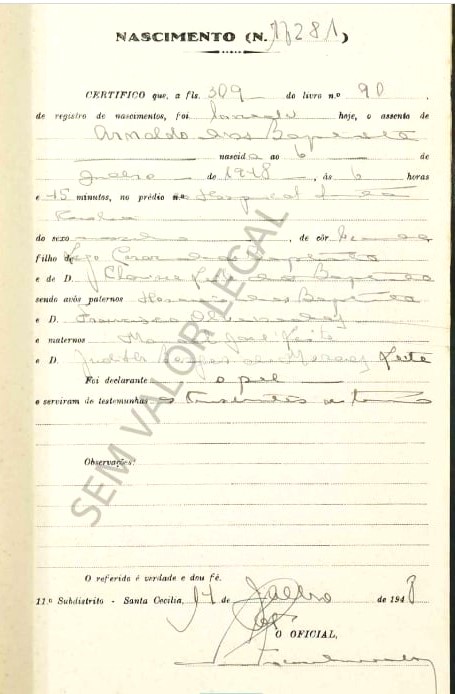 NASCIMENTO (N. 17281)
CERTIFICO que, a fls. 309 do livro n.º 90,
de registro de nascimentos, foi lavrado hoje, o assento de
Arnaldo Dias Baptista
nascid ao 6 de
Julho de 1948, ás 6 horas
e 45 minutos, no prédio n.º Hospital
do sexo masculino, de côr branca
filho de Cesar Dias Baptista
e de D. Clarisse Leite Dias Baptista
sendo avós paternos Horacio Dias Baptista
e D. Francisca
e maternos José Leite
e D. Judith de Moraes Leite
Foi declarante o pai
e serviram de testemunhas
Observações:
O referido é verdade e dou fé.
11.º Subdistrito - Santa Cecilia, 17 de Julho de 1948
O OFICIAL,
SEM VALOR LEGAL